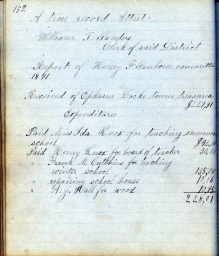 152
A true record Attest:
William T. Sanders
Clerk of said District
Report of Henry F. Sanborn committee
1891
Received of Ephraim Locke Town Treasurer
Expenditures
Paid Miss Ida Knox for teaching summer
school
Paid Henry Knox for board of teacher
" Frank M. Cutchins for teaching
winter school 135,00
" repairing school house
" A. J. Hall for wood